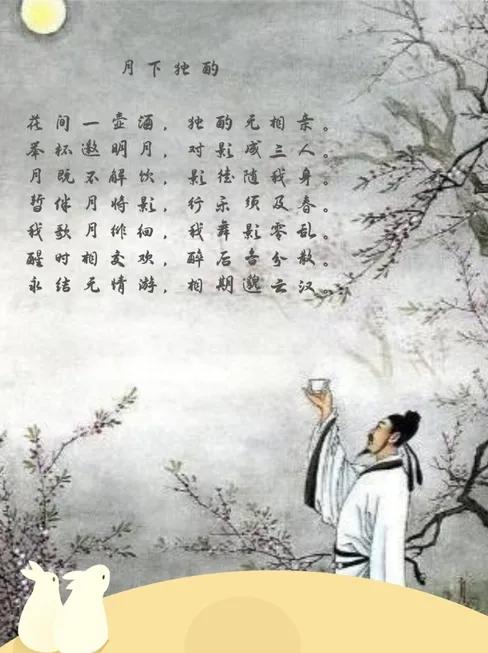 月下独酌
花间一壶酒，独酌无相亲。
举杯邀明月，对影成三人。
月既不解饮，影徒随我身。
暂伴月将影，行乐须及春。
我歌月徘徊，我舞影零乱。
醒时相交欢，醉后各分散。
永结无情游，相期邈云汉。